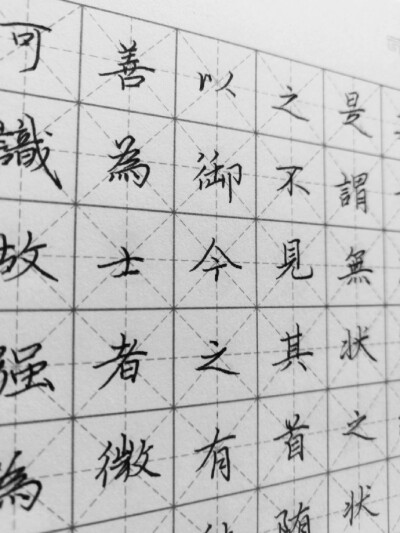 是謂無状之状
之不見其首随
以御今之有
善為士者微
可識故强為